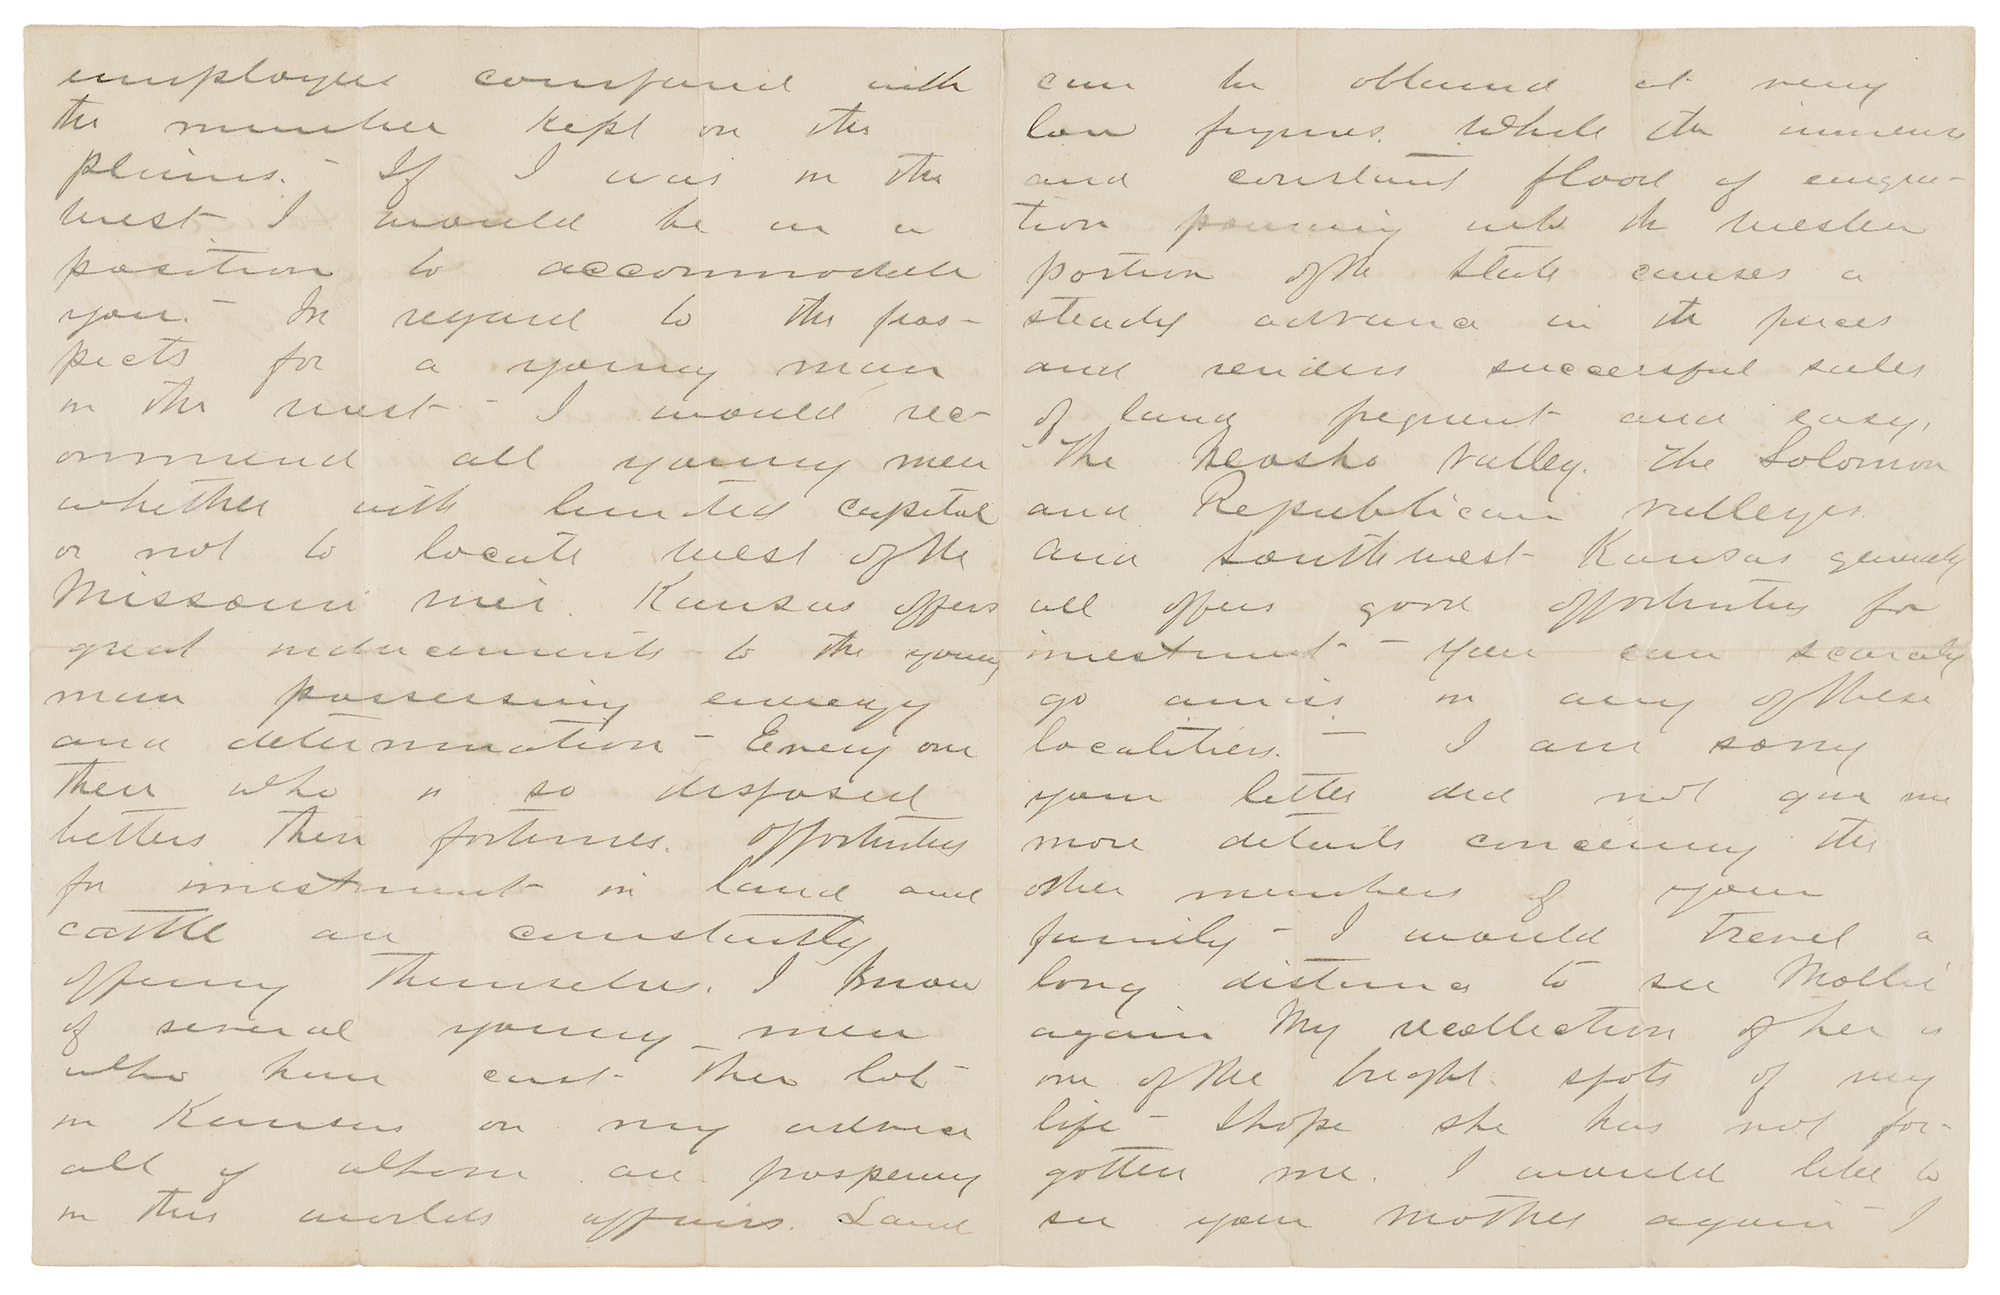 employed compared with
the number kept on the
plains.- If I was in the
west I would be in a
position to accommodate
you.- In regard to the pros-
pects for a young man
in the west - I would rec-
ommend all young men
whether with limited capital
or not to locate west of the
Missouri river. Kansas offers
great inducements to the young
man possessing energy
and determination - Every one
there who is so disposed
betters their fortunes. Opportunities
for investment in land and
cattle are constantly
offering themselves. I know
of several young men
who have cast their lot
in Kansas on my advice
all of whom are prospering
in this worlds affairs. Land
can be obtained at very
low figures. While the immense
and constant flood of emigra-
tion pouring into the western
portion of the State causes a
steady advance in the prices
and renders successful sales
of land frequent and easy.
The Neosho valley. The Solomon
and Republican valleys
and southwest Kansas generally
all offers good opportunities for
investment - You can scarcely
go amiss in any of these
localities. - I am sorry
your letter did not give me
more details concerning the
other members of your
family - I would travel a
long distance to see Mollie
again My recollection of her is
one of the bright spots of my
life - I hope she has not for-
gotten me. I would like to
see your mother again - I